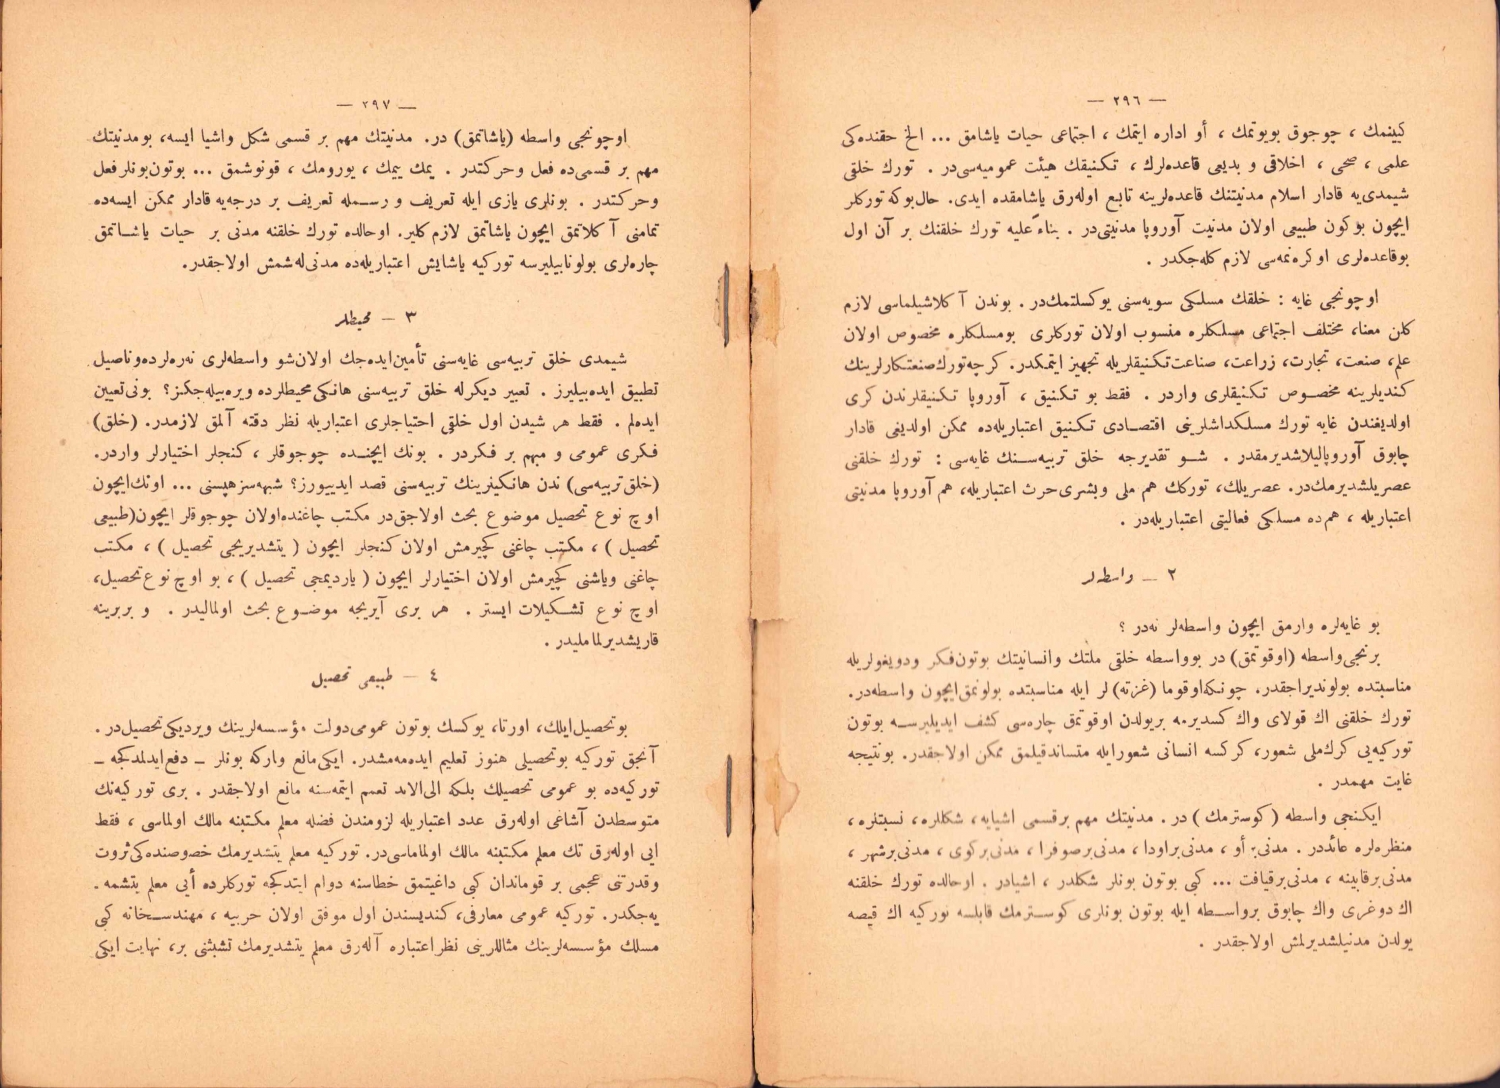 — ٢٩٦ —
كیینمك ، چوجوق بویوتمك ، أو اداره ایتمك ، اجتماعی حیات یاشامق ... الخ حقنده‌كی
علمی ، صحی ، اخلاقی و بدیعی قاعده‌لرك ، تكنیقك هیئت عمومیه‌سی‌در . تورك خلقی
شیمدی‌یه قادار اسلام مدنیتنك قاعده‌لرینه تابع اوله‌رق یاشامقده ایدی. حال‌بوكه توركلر
ایچون بوكون طبیعی اولان مدنیت آوروپا مدنیتی‌در . بناءً علیه تورك خلقنك بر آن اول
بوقاعده‌لری اوكره‌نمه‌سی لازم كله‌جكدر .
اوچونجی غایه : خلقك مسلكی سویه‌سنی یوكسلتمك‌در . بوندن آكلاشیلماسی لازم
كلن معنا، مختلف اجتماعی مسلكلره منسوب اولان توركلری بومسلكلره مخصوص اولان
علم، صنعت، تجارت، زراعت، صناعت‌تكنیقلریله تجهیز ایتمكدر. كرچه‌تورك‌صنعتكارلرینك
كندیلرینه مخصوص تكنیقلری واردر . فقط بو تكنیق ، آوروپا تكنیقلرندن كری
اولدیغندن غایه تورك مسلكداشلرینی اقتصادی تكنیق اعتباریله‌ده ممكن اولدیغی قادار
چابوق آوروپالیلاشدیرمقدر . شو تقدیرجه خلق تربیه‌سنك غایه‌سی : تورك خلقنی
عصریلشدیرمك‌در. عصریلك، توركك هم ملی وبشری‌حرث اعتباریله، هم آوروپا مدنیتی
اعتباریله ، هم‌ده مسلكی فعالیتی اعتباریله‌در .
٢ — واسطه‌لر
بو غایه‌لره وارمق ایچون واسطه‌لر نه‌در ؟
برنجی‌واسطه (اوقوتمق) در بوواسطه خلقی ملتك وانسانیتك بوتون‌فكر ودویغولریله
مناسبتده بولوندیراجقدر. چونكه‌اوقوما (غزته) لر ایله مناسبتده بولونمق‌ایچون واسطه‌در.
تورك خلقنی اك قولای واك كسدیرمه بریولدن اوقوتمق چاره‌سی كشف ایدیلیرسه بوتون
توركیه‌یی كرك‌ملی شعور، كركسه انسانی شعورایله متساندقیلمق ممكن اولاجقدر. بونتیجه
غایت مهمدر .
ایكنجی واسطه (كوسترمك) در . مدنیتك مهم برقسمی اشیایه، شكللره، نسبتلره ،
منظره‌لره عائددر . مدنی‌بر أو ، مدنی‌براودا، مدنی‌برصوفرا ، مدنی‌بركوی ، مدنی‌برشهر ،
مدنی‌برقابینه ، مدنی‌برقیافت ... كبی بوتون بونلر شكلدر ، اشیادر . اوحالده تورك خلقنه
اك دوغری واك چابوق برواسطه ایله بوتون بونلری كوسترمك قابلسه توركیه اك قیصه
یولدن مدنیلشدیرلمش اولاجقدر .
— ٢٩٧ —
اوچونجی واسطه (یاشاتمق) در. مدنیتك مهم بر قسمی شكل واشیا ایسه، بومدنیتك
مهم بر قسمی‌ده فعل وحركتدر . یمك ییمك ، یورومك ، قونوشمق ... بوتون‌بونلرفعل
وحركتدر . بونلری یازی ایله تعریف و رسمله تعریف بر درجه‌یه قادار ممكن ایسه‌ده
تمامنی آكلاتمق ایچون یاشاتمق لازم كلیر. اوحالده تورك خلقنه مدنی بر حیات یاشاتمق
چاره‌لری بولونابیلیرسه توركیه یاشایش اعتباریله‌ده مدنی‌له‌شمش اولاجقدر.
٣ — محیطلر
شیمدی خلق تربیه‌سی غایه‌سنی تأمین‌ایده‌جك اولان‌شو واسطه‌لری نه‌ره‌لرده‌وناصیل
تطبیق ایده‌بیلیرز . تعبیر دیكرله خلق تربیه‌سنی هانكی‌محیطلرده ویره‌بیله‌جكز؟ بونی‌تعیین
ایده‌لم . فقط هر شیدن اول خلقی احتیاجلری اعتباریله نظر دقته آلمق لازمدر. (خلق)
فكری عمومی و مبهم بر فكردر . بونك ایچنده چوجوقلر ، كنجلر اختیارلر واردر.
(خلق‌تربیه‌سی) ندن هانكیلرینك تربیه‌سنی قصد ایدییورز؟ شبهه‌سزهپسنی ... اونك‌ایچون
اوچ نوع تحصیل موضوع بحث اولاجق‌در مكتب چاغنده‌اولان چوجوقلر ایچون(طبیعی
تحصیل ) ، مكتب چاغنی كچیرمش اولان كنجلر ایچون ( یتشدیریجی تحصیل ) ، مكتب
چاغنی ویاشنی كچیرمش اولان اختیارلر ایچون ( یاردیمجی تحصیل ) ، بو اوچ نوع‌تحصیل،
اوچ نوع تشكیلات ایستر . هر بری آیریجه موضوع بحث اولمالیدر . و بربرینه
قاریشدیرلماملیدر .
٤ — طبیعی تحصیل
بوتحصیل‌ایلك، اورتا، یوكسك بوتون عمومی‌دولت مؤسسه‌لرینك ویردیكی‌تحصیل‌در .
آنجق توركیه بوتحصیلی هنوز تعلیم ایده‌مه‌مشدر. ایكی‌مانع واركه بونلر — دفع‌ایدلمدكجه —
توركیه‌ده بو عمومی تحصیلك بلكه الی‌الابد تعمم ایتمه‌سنه مانع اولاجقدر . بری توركیه‌نك
متوسطدن آشاغی اوله‌رق عدد اعتباریله لزومندن فضله معلم مكتبنه مالك اولماسی ، فقط
ایی اوله‌رق تك معلم مكتبنه مالك اولماماسی‌در. توركیه معلم یتشدیرمك خصوصنده‌كی‌ثروت
وقدرتنی عجمی بر قوماندان كبی داغیتمق خطاسنه دوام ایتدكجه توركلرده أیی معلم یتشمه‌
یه‌جكدر. توركیه عمومی معارفی، كندیسندن اول موفق اولان حربیه ، مهندسخانه كبی
مسلك مؤسسه‌لرینك مثاللرینی نظراعتباره آله‌رق معلم یتشدیرمك تشبثنی بر، نهایت ایكی